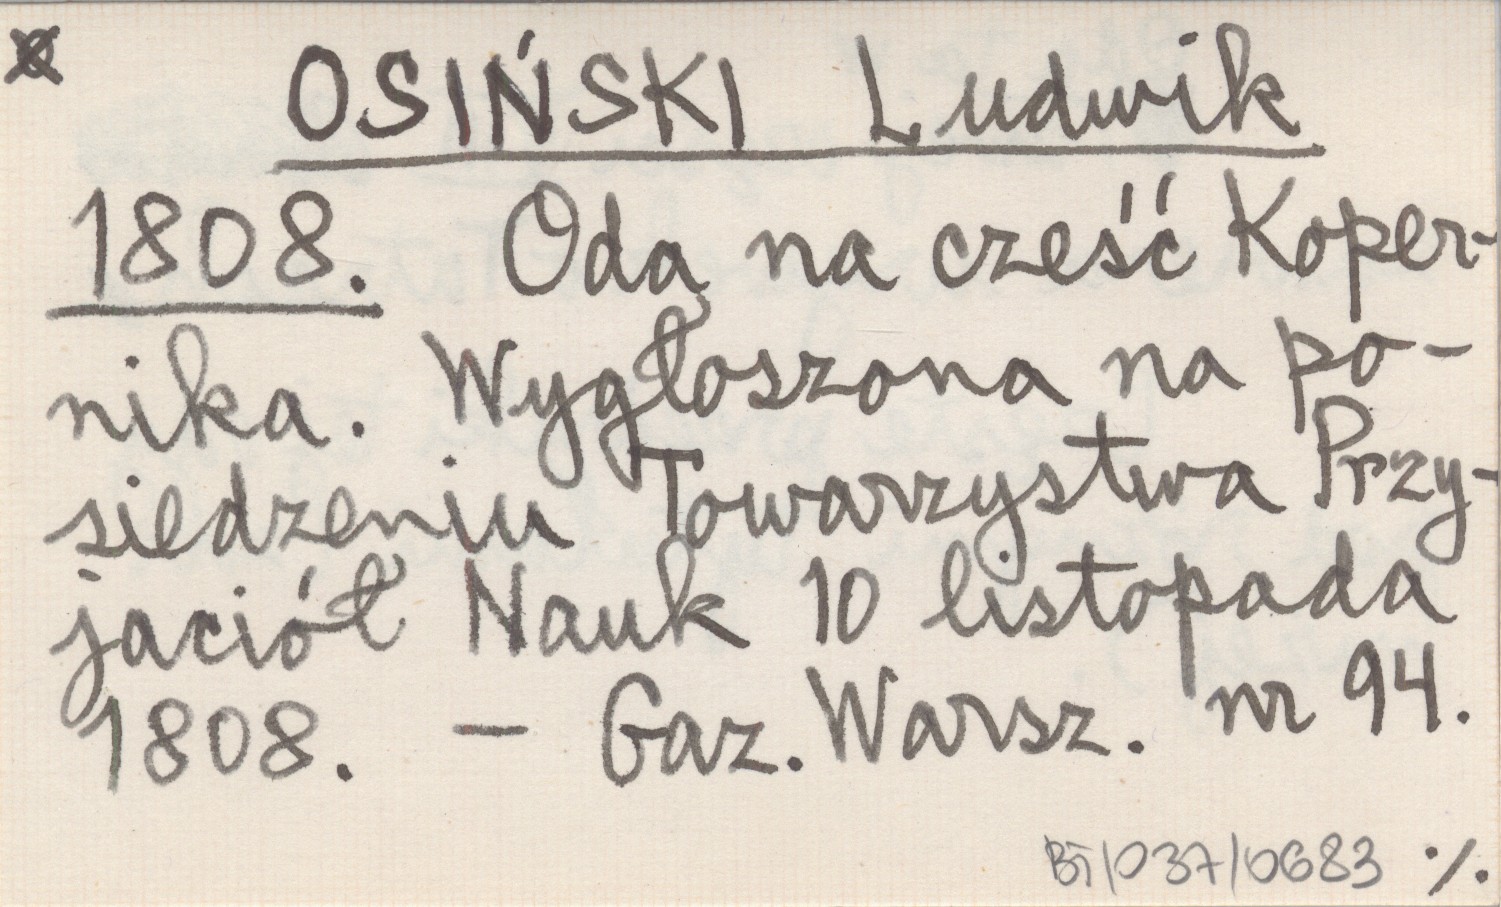 OSIŃSKI Ludwik
1808. Oda na cześć Koper-
nika. Wygłoszona na po-
siedzeniu Towarzystwa Przy-
jaciół Nauk 10 listopada
1808. — Gaz. Warsz. nr 94.
BT/037/0683 ·/.